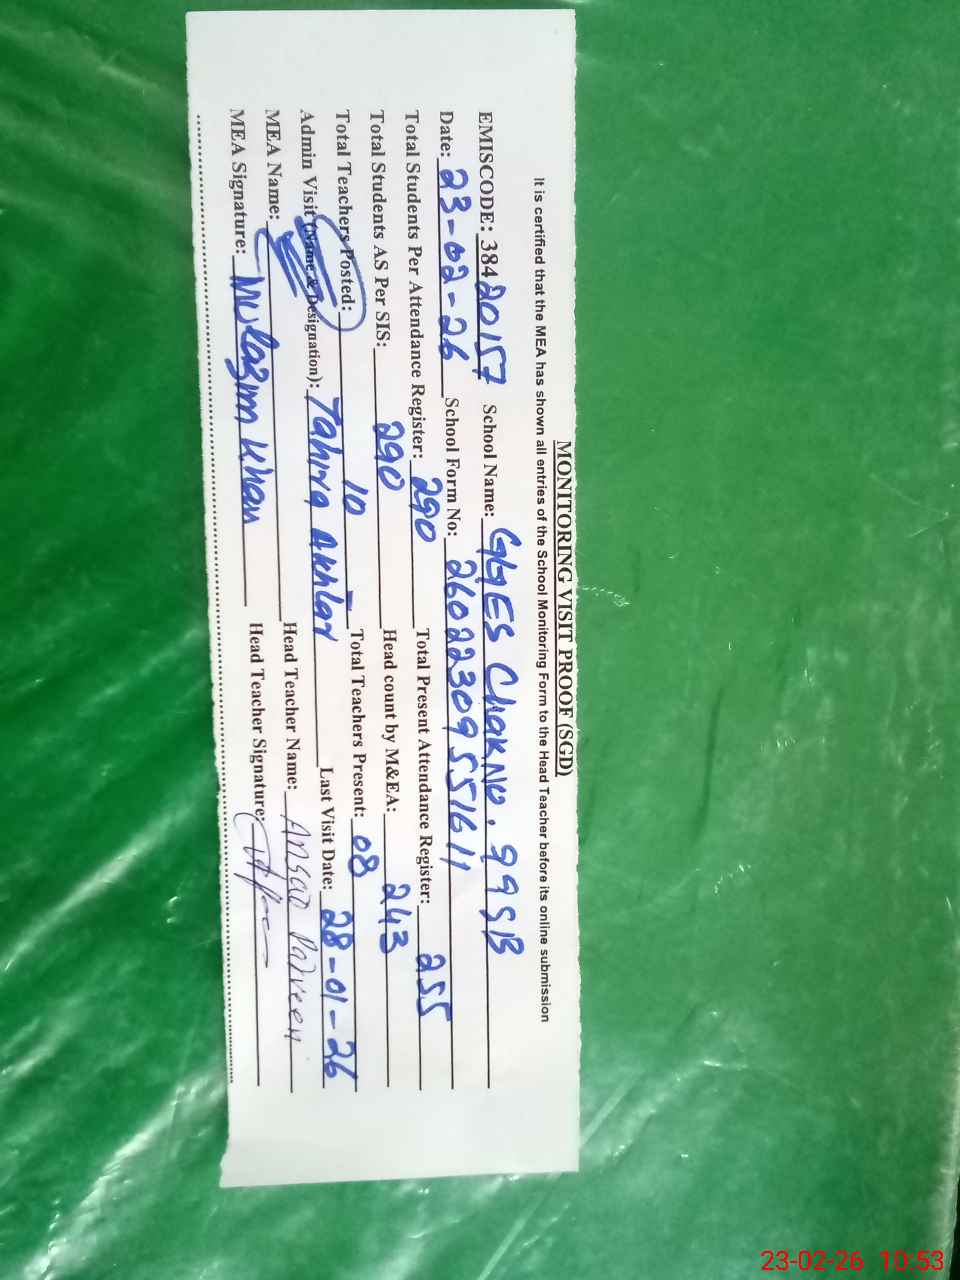 MONITORING VISIT PROOF (SGD)
It is certified that the MEA has shown all entries of the School Monitoring Form to the Head Teacher before its online submission
EMISCODE: 38420157 School Name: GGES Chak No. 99 SB
Date: 23-02-26 School Form No: 260223095516 11
Total Students Per Attendance Register: 290 Total Present Attendance Register: 255
Total Students AS Per SIS: 290 Head count by M&EA: 243
Total Teachers Posted: 10 Total Teachers Present: 08
Admin Visit (Name & Designation): Tahira Akhtar Last Visit Date: 28-01-26
MEA Name: Head Teacher Name: Parveen
MEA Signature: Mulazim Khan Head Teacher Signature:
23-02-26 10:53